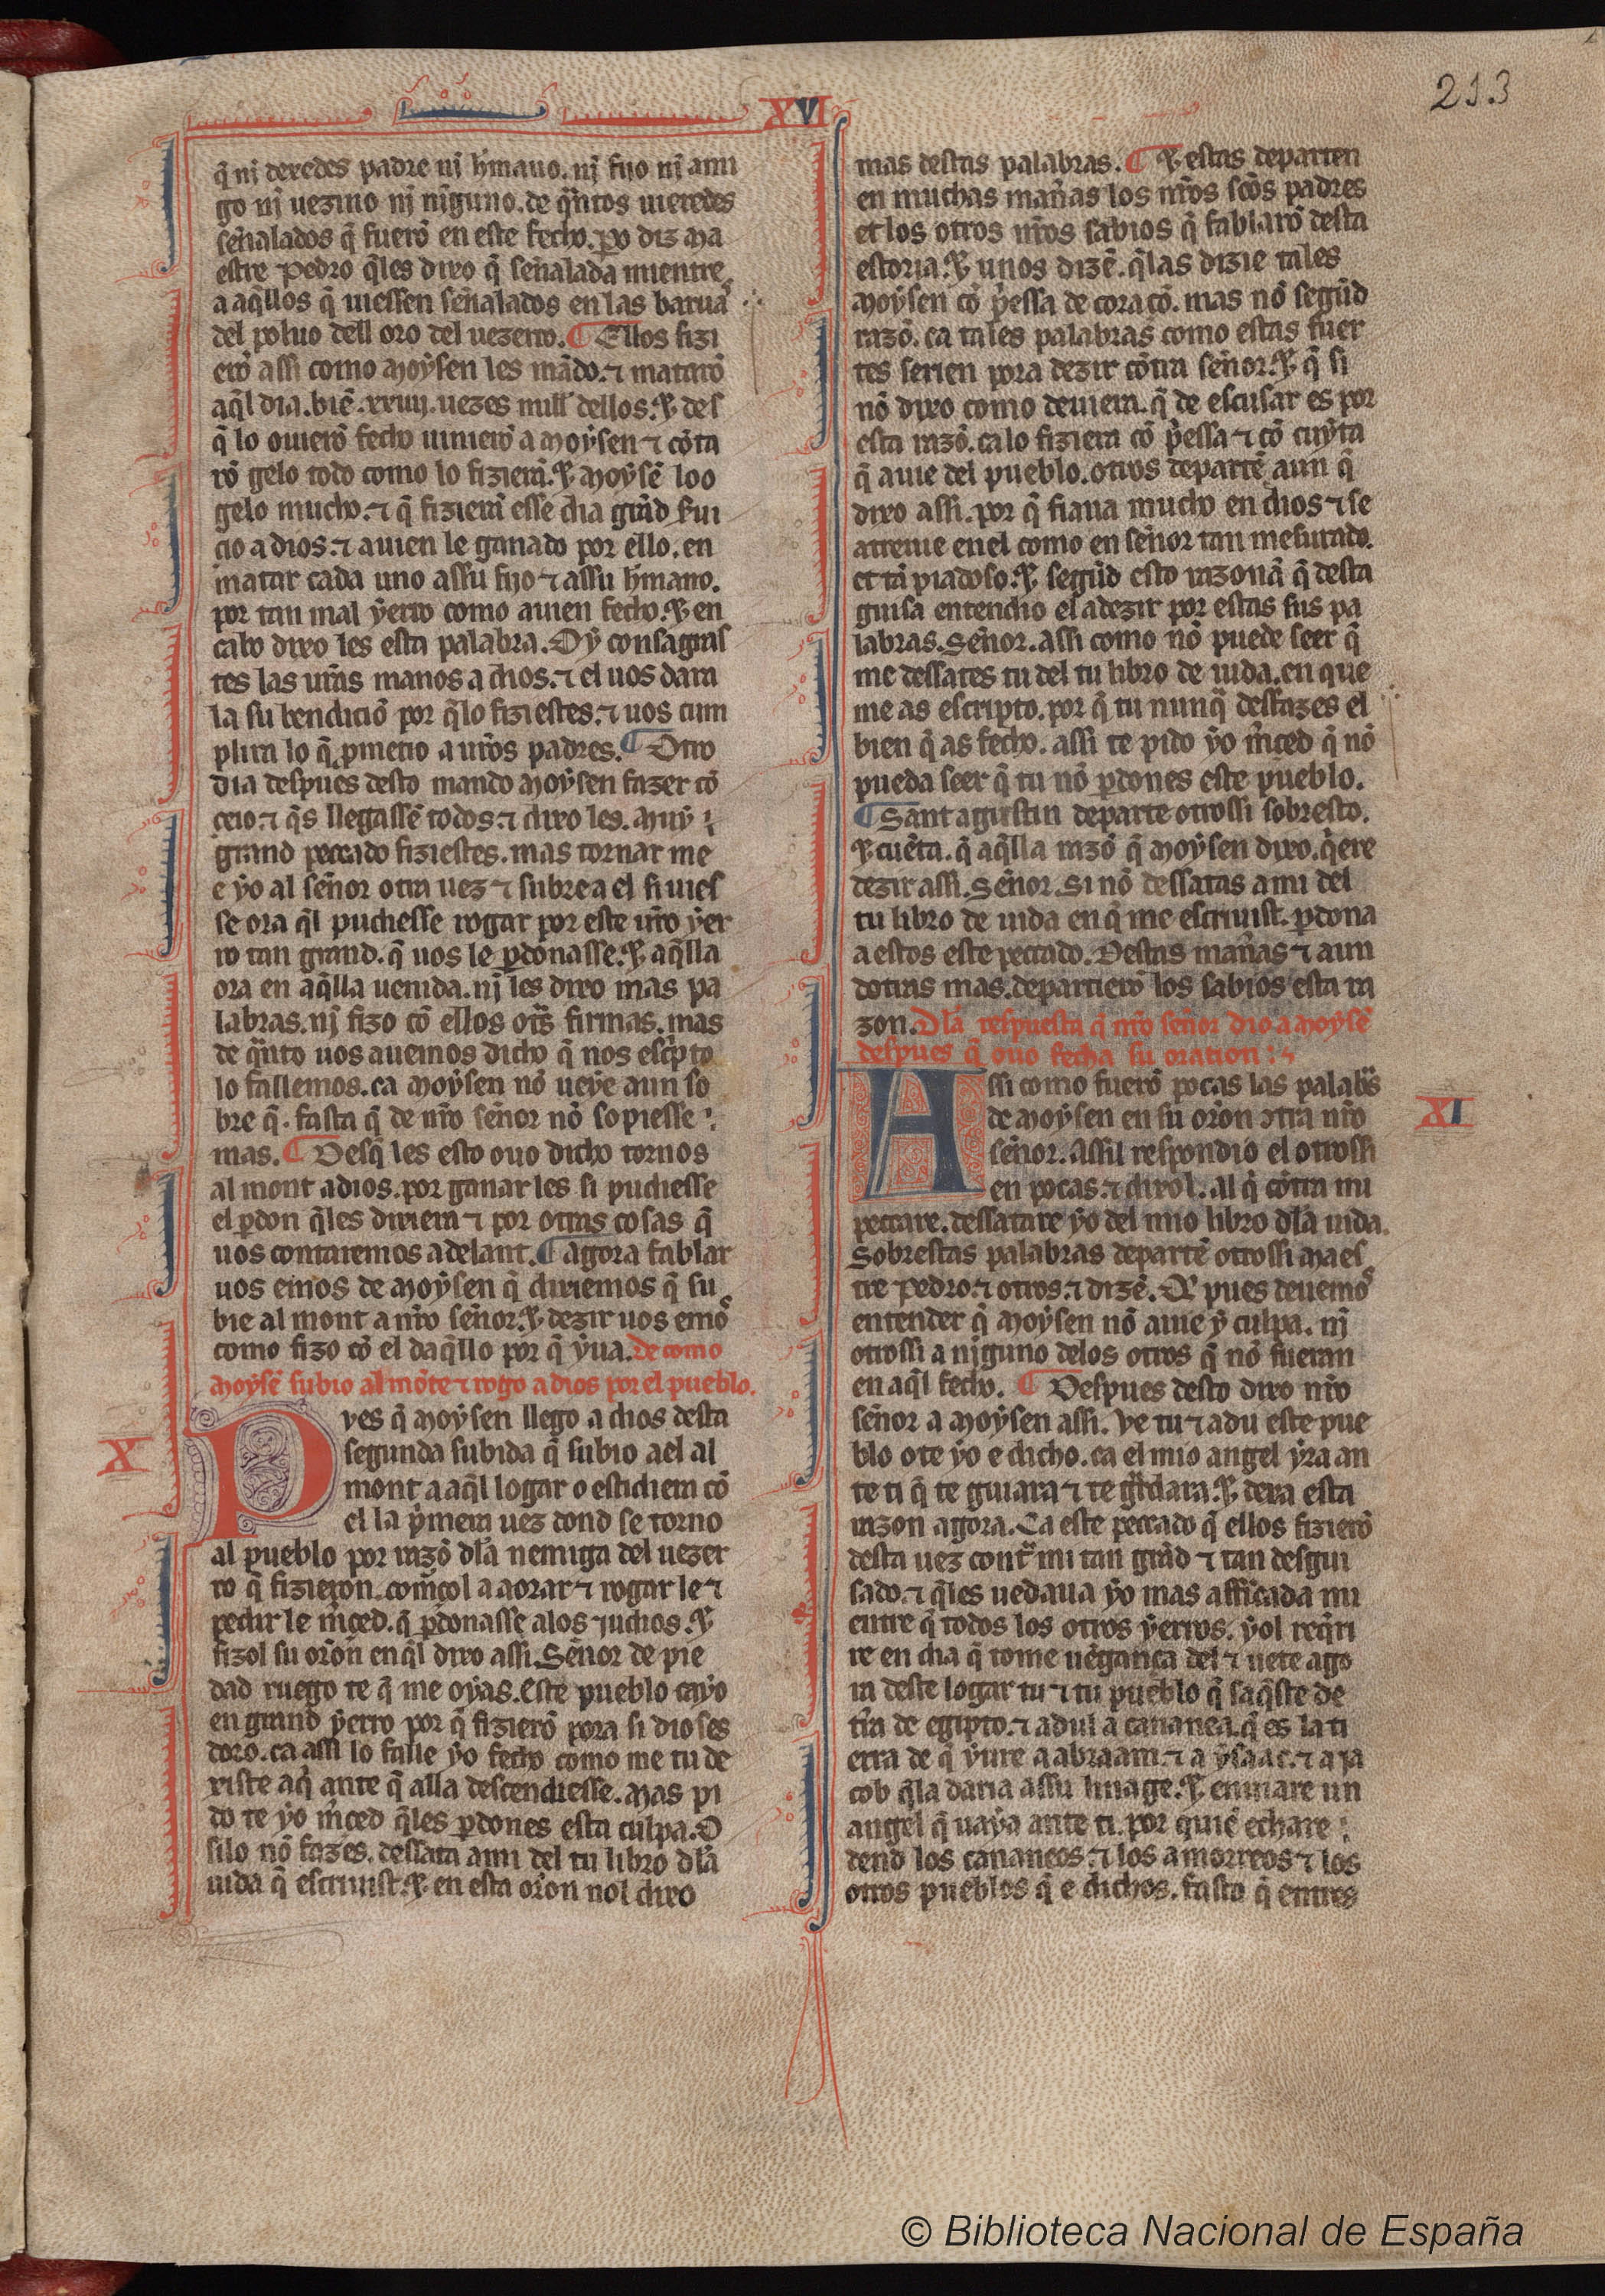 XVI
213
q̃ ni dexedes padre nj h̃mano. nj fijo nj ami
go nj uezino nj nĩguno. de q̃ntos uieredes
señalados q̃ fuerõ en este fecho. po diz Ma
estre Pedro q̃les dixo q̃ señalada mientre
a aq̃llos q̃ uiessen señalados en las baruas
del poluo dell oro del uezerro. ¶ Ellos fizi
erõ assi como Moẏsen les mãdo. ⁊ matarõ
aq̃l dia. biẽ .xxiij. uezes mill dellos. ⁊ des
q̃ lo ouierõ fecho uinierõ a Moẏsen ⁊ cõta
rõ gelo todo como lo fizierã. ⁊ Moẏsẽ loo
gelo mucho. ⁊ q̃ fizierã esse dia grãd ẜui
cio a dios. ⁊ auien le ganado por ello. en
matar cada uno assu fijo ⁊ assu h̃mano.
por tan mal ẏerro como auien fecho. ⁊ en
cabo dixo les esta palabra. Oẏ consagras
tes las ur̃as manos a dios. ⁊ el uos dara
la su bendiciõ por q̃lo fiziestes. ⁊ uos cum
plira lo q̃ pmetio a ur̃os padres. ¶ Otro
dia despues desto mando Moẏsen fazer cõ
ceio. ⁊ q̃s llegassẽ todos. ⁊ dixo les. Muẏ
grand peccado fiziestes. mas tornar me
e ẏo al señor otra uez ⁊ subre a el si uies
se ora q̃l pudiesse rogar por este ur̃o ẏer
ro tan grand. q̃ uos le pdonasse. ⁊ aq̃lla
ora en aq̃lla uenida. nj les dixo mas pa
labras. nj fizo cõ ellos otr̃s firmas. mas
de q̃nto uos auemos dicho q̃ nos esc̃pto
lo fallemos. ca Moẏsen nõ ueẏe aun so
bre q̃. fasta q̃ de nr̃o señor nõ sopiesse
mas. ¶ Desq̃ les esto ouo dicho tornos
al mont a dios. por ganar les si pudiesse
el pdon q̃les dixiera ⁊ por otras cosas q̃
uos contaremos adelant. ¶ Agora fablar
uos emos de Moẏsen q̃ dixiemos q̃ su
bie al mont a nr̃o señor. ⁊ dezir uos emos
como fizo cõ el daq̃llo por q̃ ẏua. De como
Moẏsẽ subio al mõte ⁊ rogo a dios por el pueblo.
X
Pves q̃ Moẏsen llego a dios desta
segunda subida q̃ subio a el al
mont a aq̃l logar o estidiera cõ
el la p̃mera uez dond se torno
al pueblo por razõ dl̃a nemiga del uezer
ro q̃ fizieron. comẽçol a aorar ⁊ rogar le ⁊
pedir le m̃ced. q̃ pdonasse alos judios. ⁊
fizol su orõn en q̃l dixo assi. Señor de pie
dad ruego te q̃ me oẏas. Este pueblo caẏo
en grand ẏerro por q̃ fizierõ pora si dioses
doro. ca assi lo falle ẏo fecho como me tu de
xiste aq̃ ante q̃ alla descendiesse. Mas pi
do te ẏo m̃ced q̃les pdones esta culpa. O
silo nõ fazes. dessata a mi del tu libro dl̃a
uida q̃ escriuist. ⁊ en esta orõn nol dixo
mas destas palabras. ¶ ⁊ estas departen
en muchas mañas los nr̃os scõs padres
et los otros nr̃os sabios q̃ fablarõ desta
estoria. ⁊ unos dizẽ. q̃las dizie tales
Moẏsen cõ p̃essa de coraçõ. mas nõ segũd
razõ. ca tales palabras como estas fuer
tes serien pora dezir cõtra señor. ⁊ q̃ si
nõ dixo como deuiera. q̃ de escusar es por
esta razõ. ca lo fiziera cõ p̃essa ⁊ cõ cuẏta
q̃ auie del pueblo. otros departẽ aun q̃
dixo assi. por q̃ fiaua mucho en dios ⁊ se
atreuie enel como en señor tan mesurado.
et tã piadoso. ⁊ segũd esto razonã q̃ desta
guisa entendio el a dezir por estas sus pa
labras. Señor. assi como nõ puede seer q̃
me dessates tu del tu libro de uida. en que
me as escripto. por q̃ tu nunq̃ desfazes el
bien q̃ as fecho. assi te pido ẏo m̃ced q̃ nõ
pueda seer q̃ tu nõ pdones este pueblo.
¶ Sant agustin departe otrossi sobresto.
⁊ cuẽta. q̃ aq̃lla razõ q̃ Moẏsen dixo. q̃ere
dezir assi. Señor. Si nõ dessatas a mi del
tu libro de uida en q̃ me escriuist. pdona
a estos este peccado. Destas mañas ⁊ aun
dotras mas. departierõ los sabios esta ra
zon. Dl̃a respuesta q̃ nr̃o señor dio a Moẏsẽ
despues q̃ ouo fecha su oration:
XI
Assi como fuerõ pocas las palab̃s
de Moẏsen en su orõn ↄtra nr̃o
señor. Assil respondio el otrossi
en pocas. ⁊ dixol. Al q̃ cõtra mi
peccare. dessatare ẏo del mio libro dl̃a uida.
Sobrestas palabras departẽ otrossi Maes
tre Pedro. ⁊ otros. ⁊ dizẽ. Q̃ pues deuemos
entender q̃ Moẏsen nõ auie ẏ culpa. nj
otrossi a njguno delos otros q̃ nõ fueran
en aq̃l fecho. ¶ Despues desto dixo nr̃o
señor a Moẏsen assi. Ve tu ⁊ adu este pue
blo o te ẏo e dicho. ca el mio angel ẏra an
te ti q̃ te guiara ⁊ te gr̃dara. ⁊ dexa esta
razon agora. Ca este peccado q̃ ellos fizierõ
desta uez cont̃ mi tan grãd ⁊ tan desgui
sado. ⁊ q̃les uedaua ẏo mas afficada mi
entre q̃ todos los otros ẏerros. ẏol req̃ri
re en dia q̃ tome uẽgança del ⁊ uete ago
ra deste logar tu ⁊ tu pueblo q̃ saq̃ste de
tr̃a de egipto. ⁊ adul a cananea. q̃ es la ti
erra de q̃ ẏure a abraam. ⁊ a ẏsaac. ⁊ a ja
cob q̃la daria assu linage. ⁊ enuiare un
angel q̃ uaẏa ante ti. por quiẽ echare
dend los cananeos. ⁊ los amorreos ⁊ los
otros pueblos q̃ e dichos. fasta q̃ entres
© Biblioteca Nacional de España